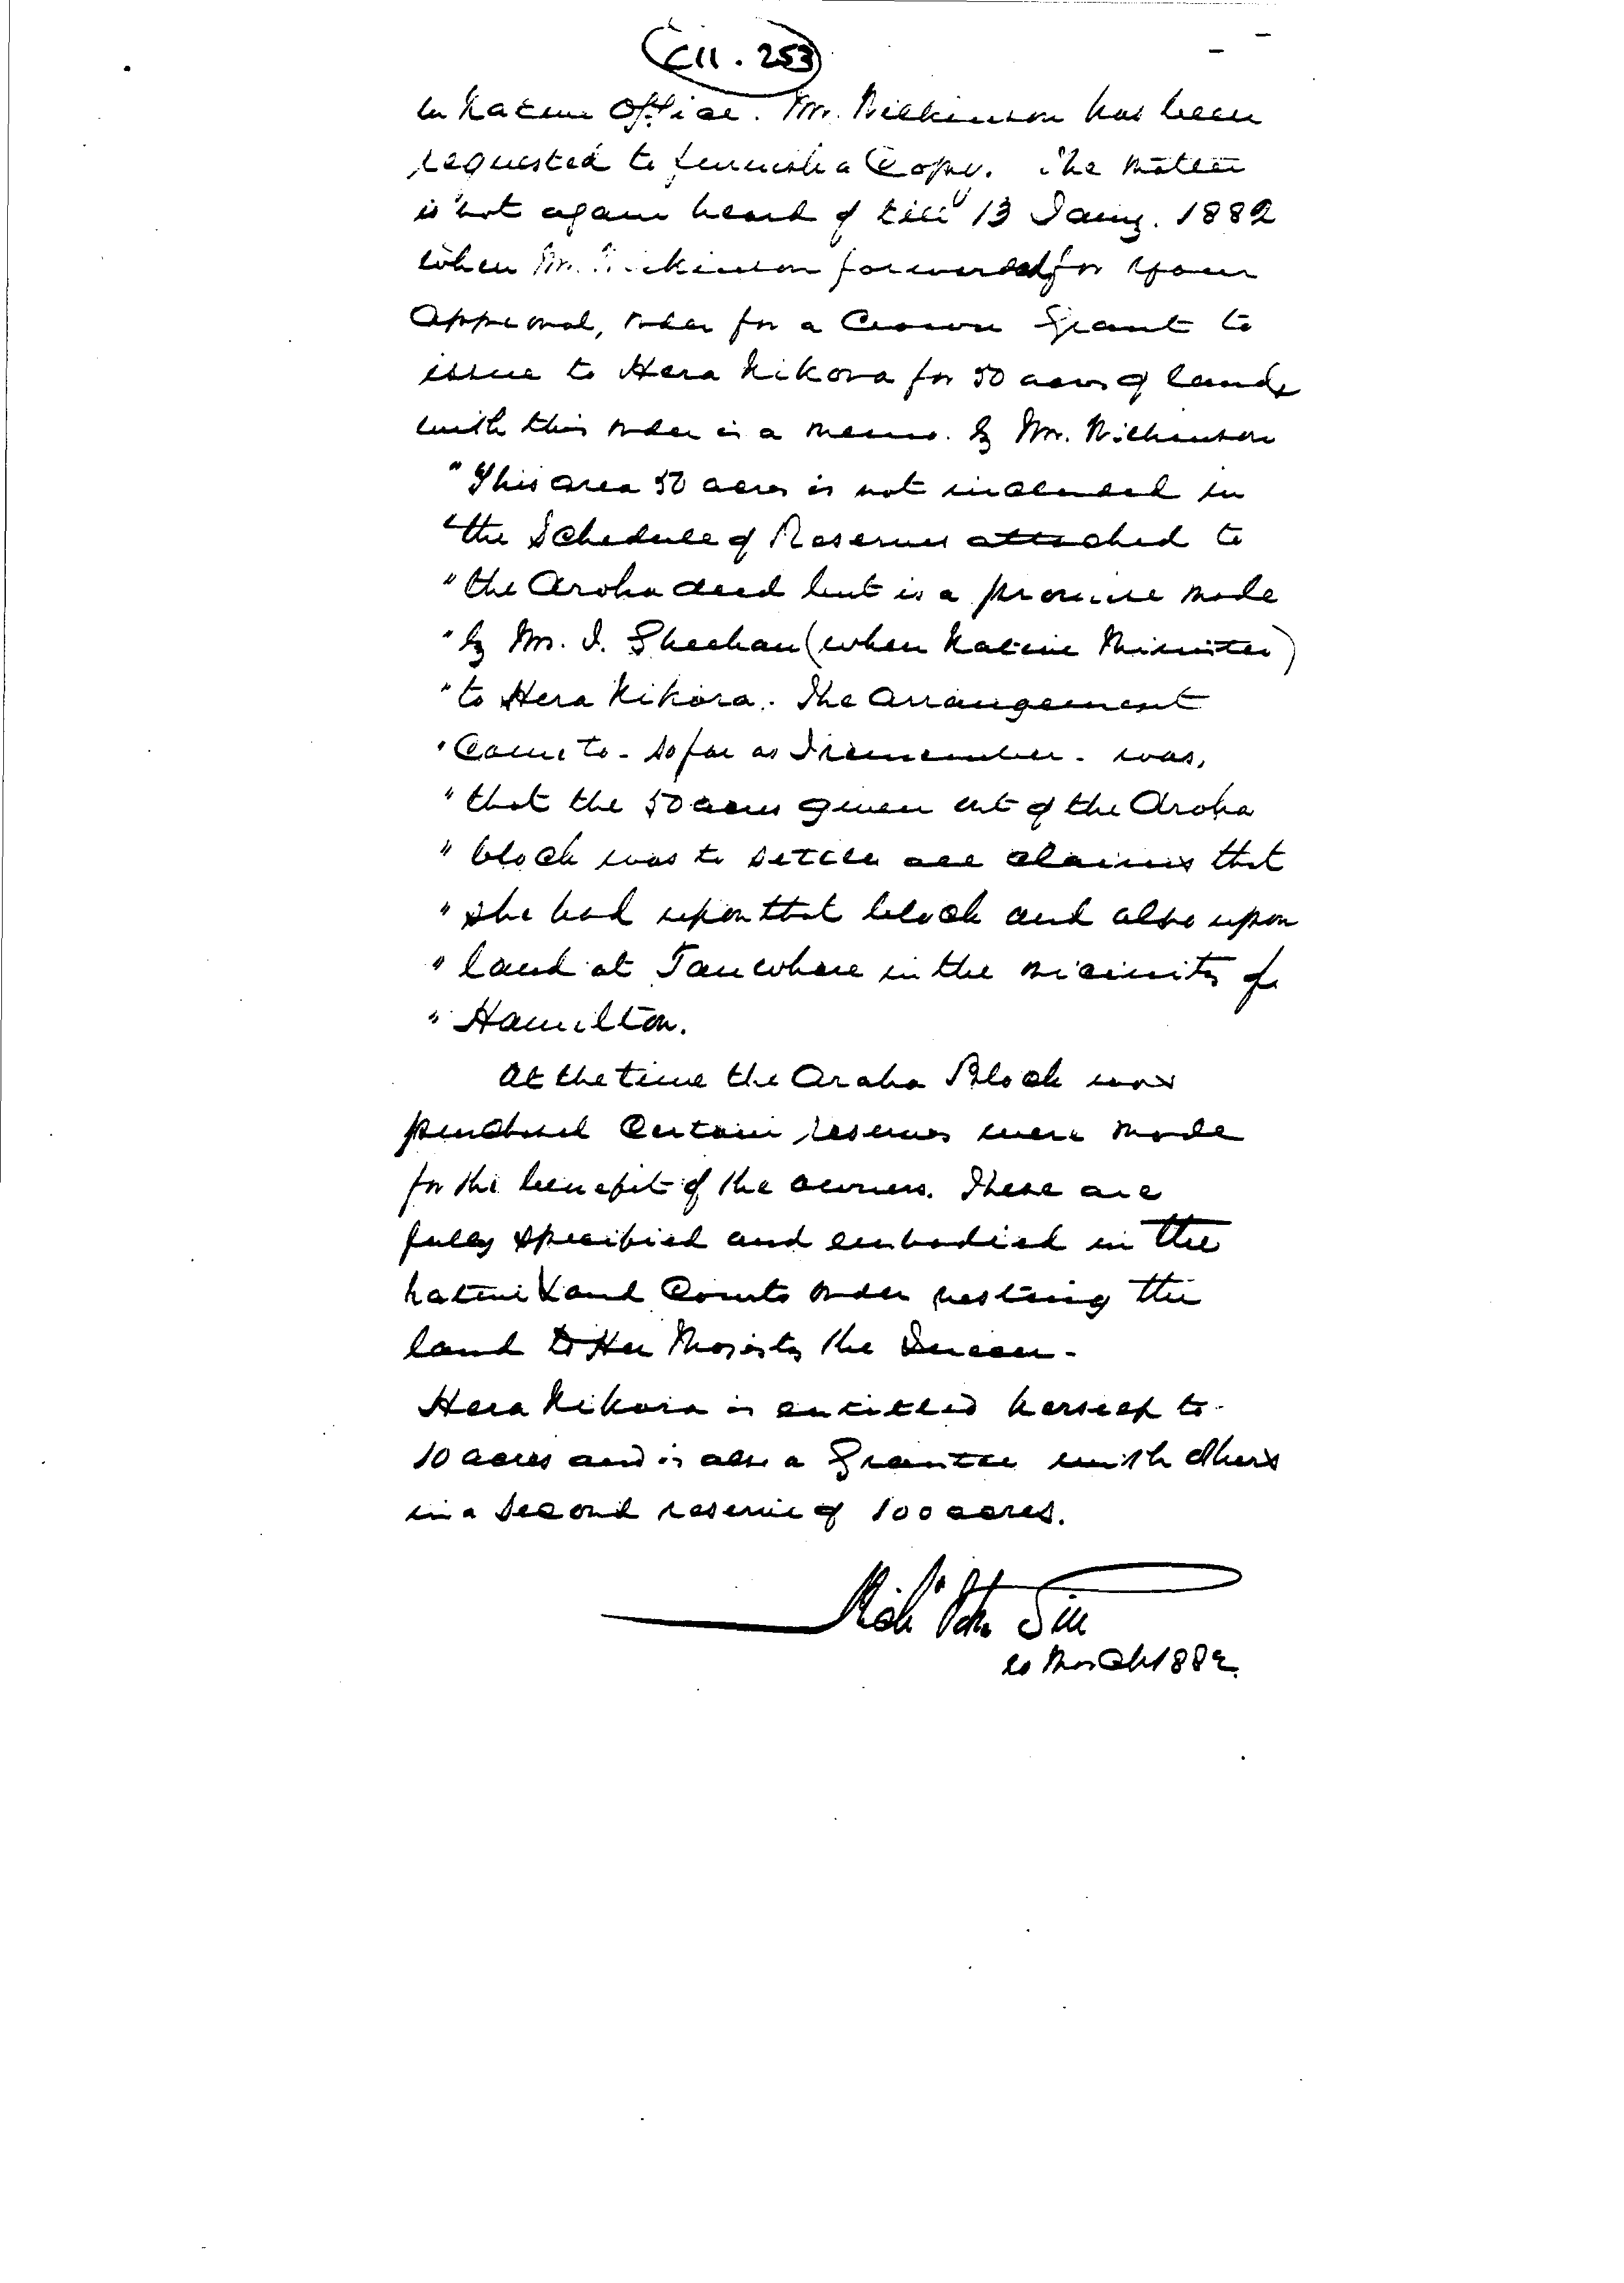 C11.253
in Native Office. Mr. Wilkinson has been
requested to furnish a Copy. The matter
is not again heard of till 13 Jany. 1882
when Mr. Wilkinson forwarded for your
approval, order for a Crown Grant to
issue to Hera Nikora for 50 acres of land
with this order is a memo. by Mr. Wilkinson
"This area 50 acres is not included in
"the Schedule of Reserves attached to
"the Aroha deed but is a promise made
"by Mr. J. Sheehan (when Native Minister)
"to Hera Nikora. The arrangement
"Come to - so far as I remember - was,
"that the 50 acres given out of the Aroha
"block was to settle all claims that
"she had upon that block and also upon
"land at Tauwhare in the vicinity of
"Hamilton.
At the time the Aroha Block was
purchased Certain reserves were made
for the benefit of the owners. These are
fully specified and embodied in the
Native Land Courts order vesting the
land to Her Majesty the Queen -
Hera Nikora is entitled herself to
10 acres and is also a Grantee with others
in a second reserve of 100 acres.
March 1882.